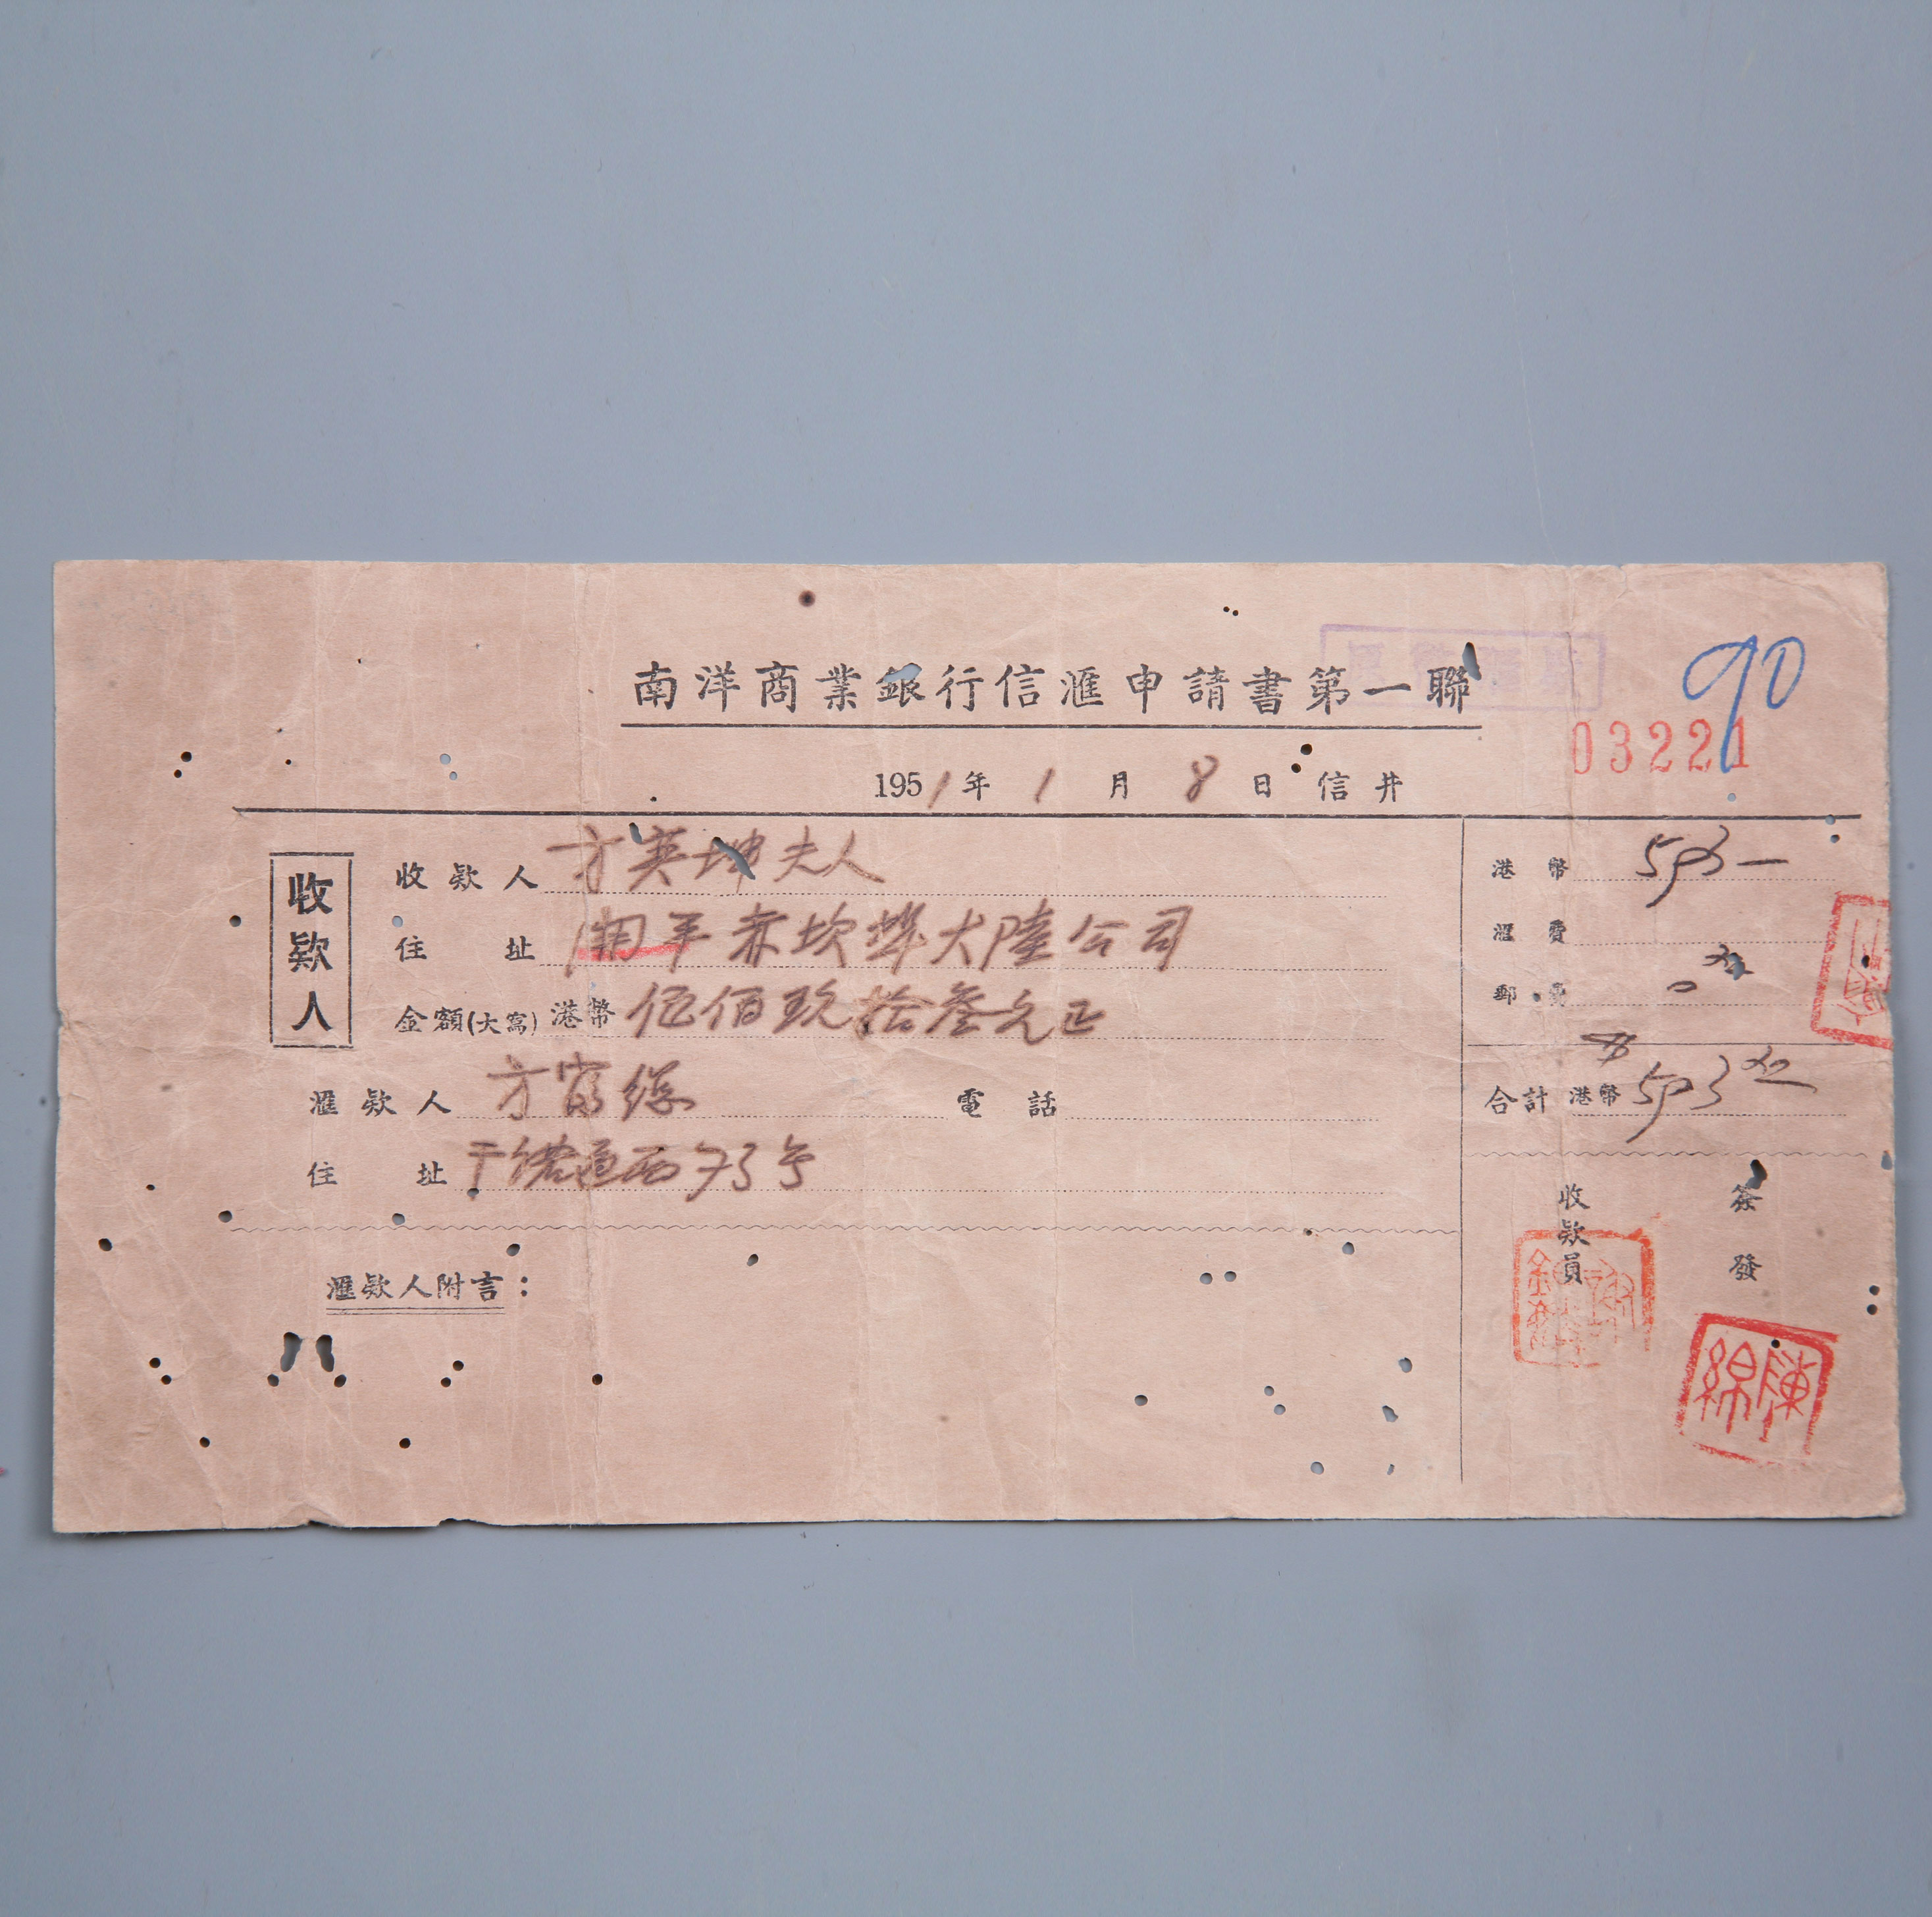 南洋商業銀行信滙申請書第一聯
90
03221
1951年1月8日 信井
收欵人
收欵人 方英坤夫人
住址 開平赤坎埠大陸公司
金額(大寫) 港幣 伍佰玖拾叁元正
滙欵人 方富 電話
住址 干諾道西73号
滙欵人附言：
港幣
滙費
郵費
合計 港幣
收欵員
簽發
陳綿